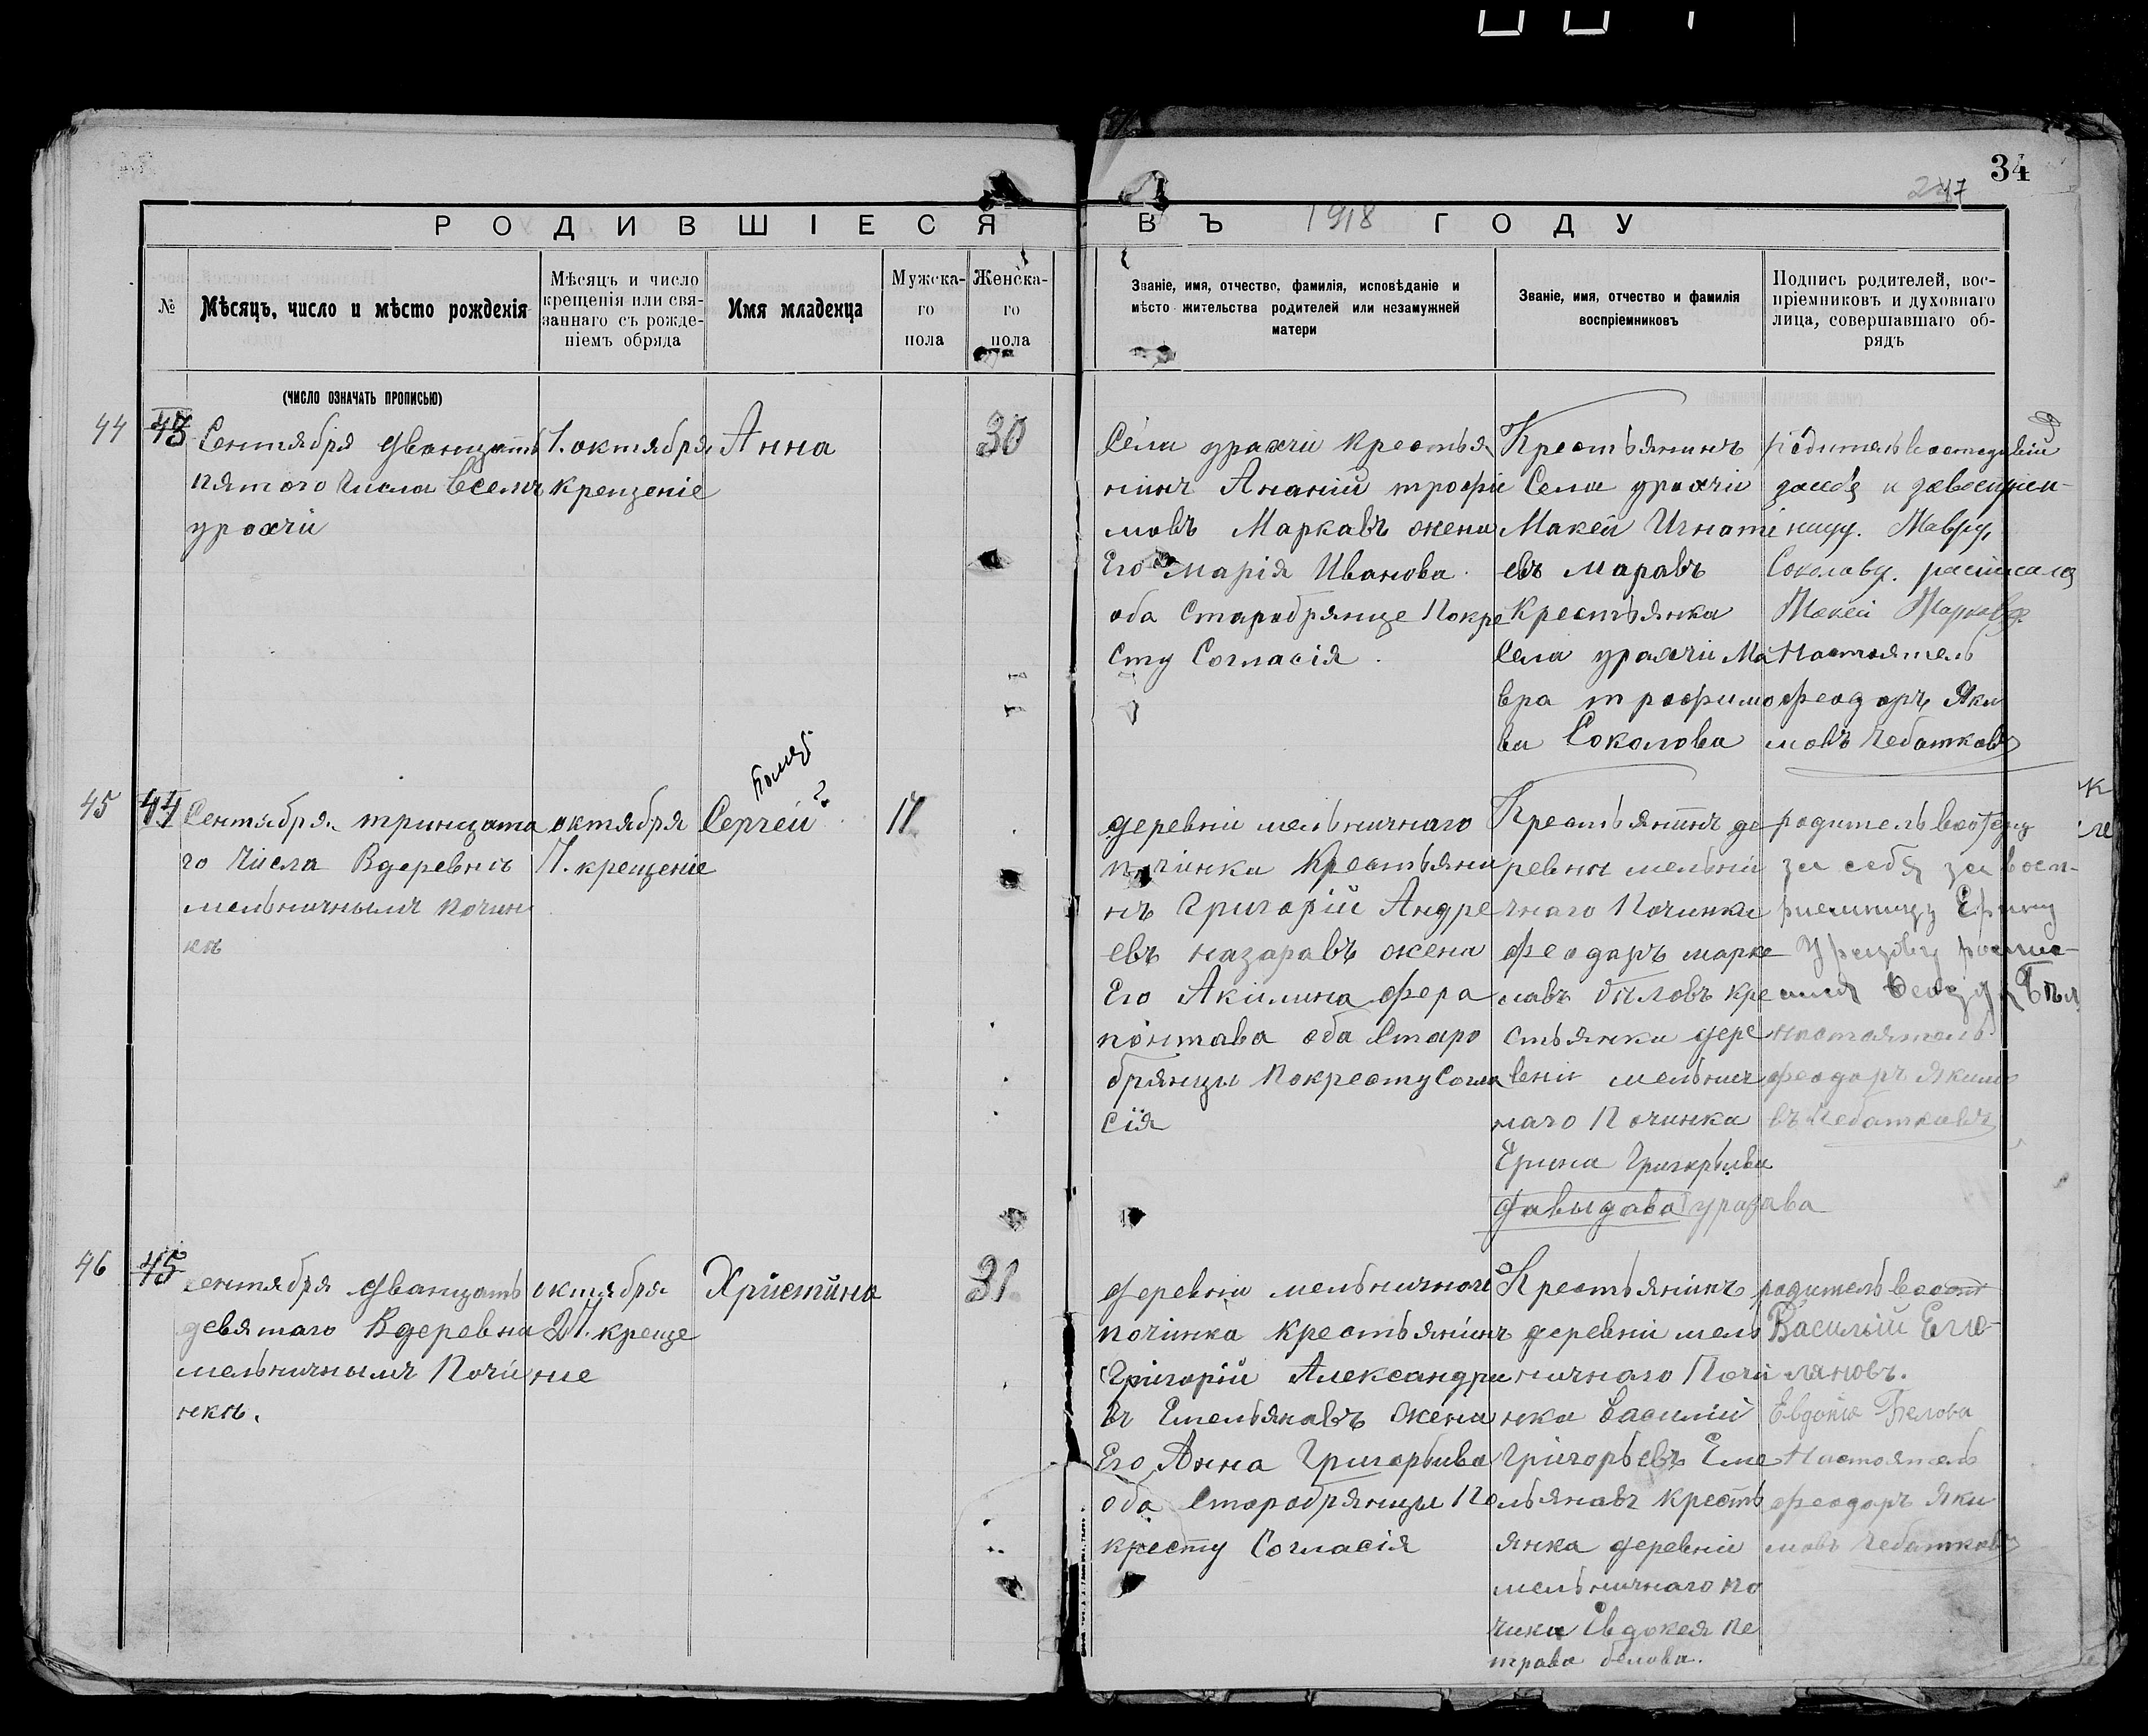 34
247
РОДИВШІЕСЯ ВЪ 1918 ГОДУ
№
Мѣсяцъ, число и мѣсто рожденія
Мѣсяцъ и число
крещенія или свя-
заннаго съ рожде-
ніемъ обряда
Имя младенца
Мужска-
го
пола
Женска-
го
пола
Званіе, имя, отчество, фамилія, исповѣданіе и
мѣсто жительства родителей или незамужней
матери
Званіе, имя, отчество и фамилія
воспріемниковъ
Подпись родителей, вос-
пріемниковъ и духовнаго
лица, совершавшаго об-
рядъ
(ЧИСЛО ОЗНАЧАТЬ ПРОПИСЬЮ)
44
43
Сентября дванцать
пятого числа вселъ
урахчи
1. октября
крещеніе
Анна
30
Села урахчи крестья
нинъ Ананий трофи
мовъ Маркавъ жена
Его Марія Иванова
оба Старобрянце Покре
сту Согласія.
Крестьянинъ
Села урахчи
Макей Игнати
евъ Маравъ
Крестьянка
Села урахчи Ма
вра трофимо
ва Соколова
ницу. Мавру,
Соколаву. расписалса
Макей Маркавъ
Настоятель
феодоръ Яки
мовъ Чебатковъ
45
44
Сентября. тринцата
го числа Вдеревнѣ
мельничнымъ почин
кѣ
октября
17. крещеніе
Сергей
?
17
деревни мельничнаго
починка Крестьяни
нъ Григорій Андре
евъ назаравъ жена
Его Акилина фера
понтава оба Старо
брянцы Покресту Согла
сія
Крестьянинъ де
ревни мельни
чнаго Починка
феодоръ марке
лавъ биловъ кре
стьянка дере
вени мельнич
наго Починка
Ерина Григорьива
давыдава уразава
родитель
за себя за восп-
риемницу Ерину
Уразову
настоятель
феодоръ Якимо
въ Чебаткавъ
46
45
сентября дванцать
девятаго Вдеревни
мельничнымъ Почи
нкѣ.
октября
27. креще
ние
Христина
31
деревни мельничног
починка крестьянинъ
Григорій Александри
въ Емельянавъ Жена
Его Анна Григорьива
оба Старобрянцы По
кресту Согласія
Крестьянинъ
деревни мель
ничнаго Почи
нка Василій
Григорьевъ Еме
льянавъ кресть
янка деревни
мельничнаго по
чинка Евдокея пе
трава белова.
родитель
Василий Еме-
ляновъ.
Евдокія Белова
Настоятель
феодоръ Яки
мовъ Чебатковъ